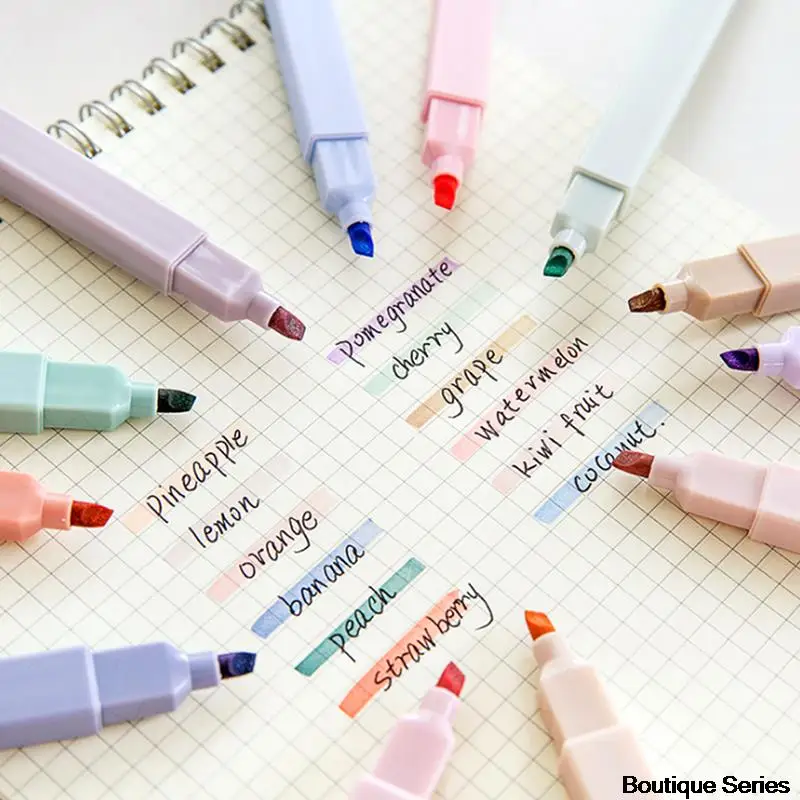 pomegranate
cherry
grape
watermelon
kiwi fruit
coconut.
pineapple
lemon
orange
banana
peach
strawberry
Boutique Series